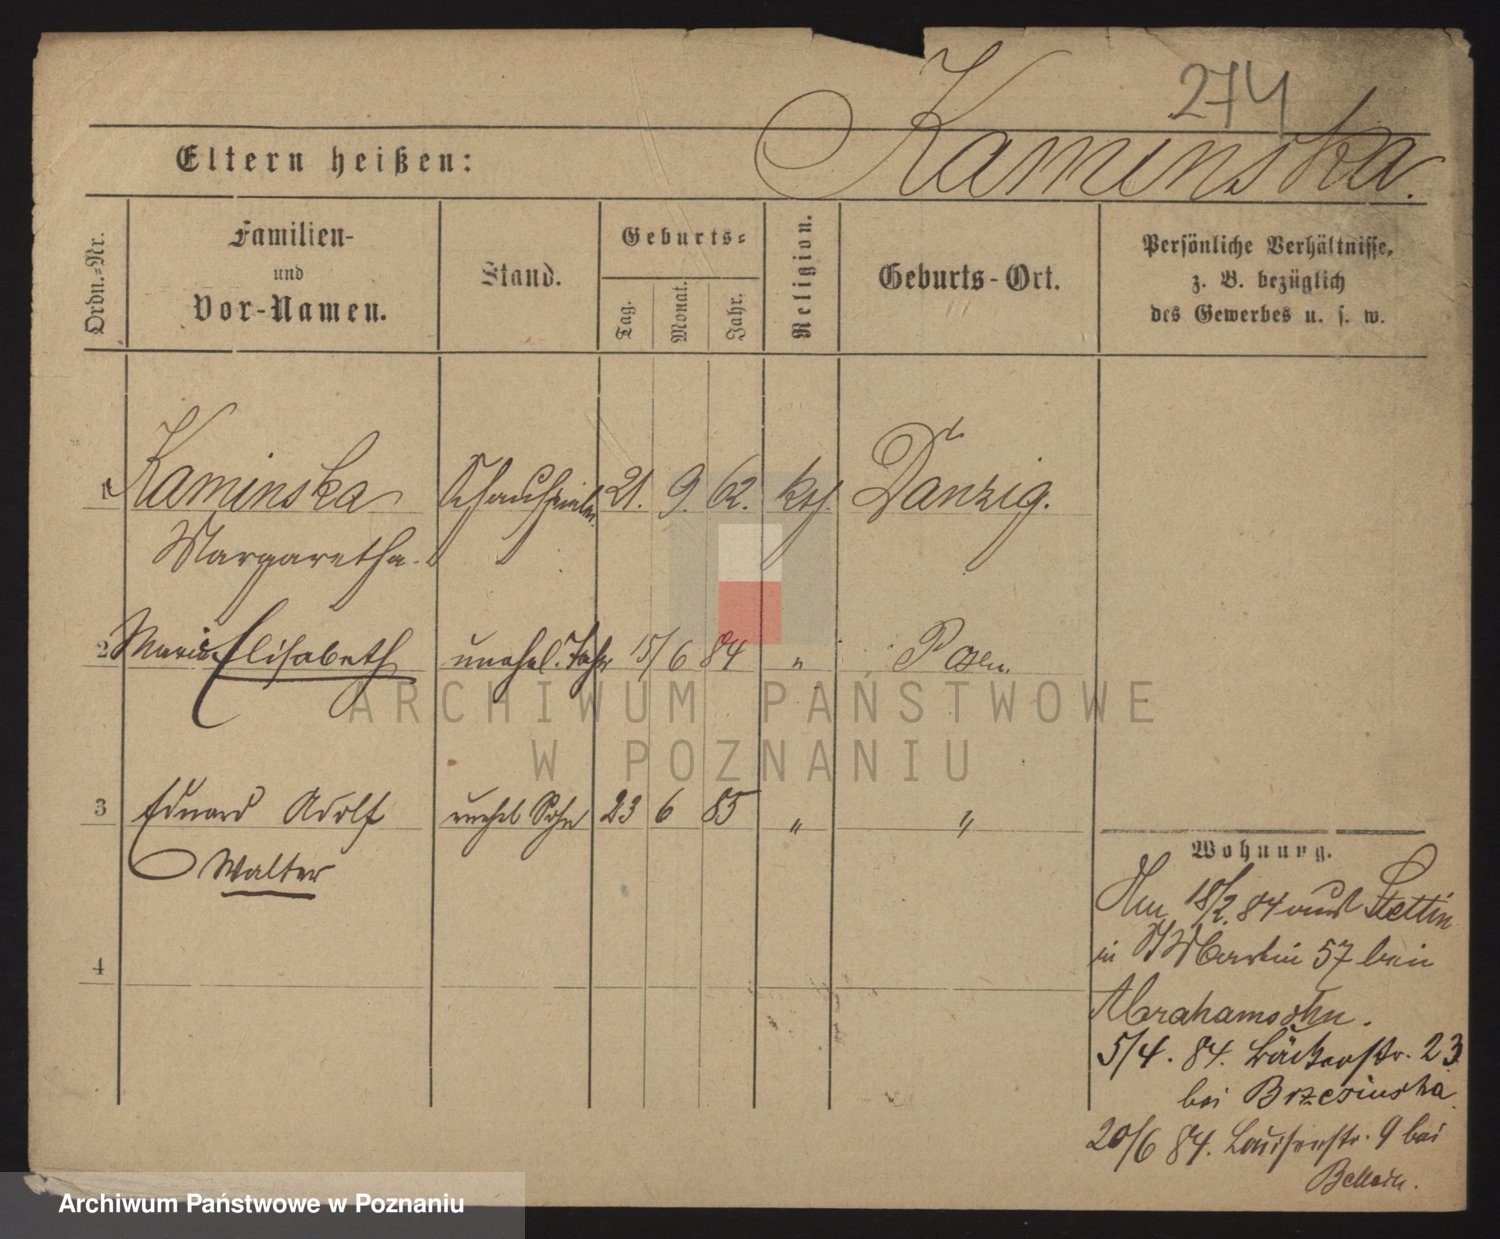 274
Kaminska.
Eltern heißen:
Ordn.-Nr.
Familien-
und
Vor-Namen.
Stand.
Geburts-
Tag.
Monat.
Jahr.
Religion.
Geburts-Ort.
Persönliche Verhältnisse,
z. B. bezüglich
des Gewerbes u. s. w.
1 Kaminska 21. 9. 62. kth. Danzig.
Margaretha.
2 Maria Elisabeth unehel. Tchr 15/ 6 84 " Posen.
3 Eduard Adolf unehl Sohn 23 6 85 " "
Walter
4
Wohnung.
18/2. 84 aus Stettin
in St Martin 57 bei
Abrahamsohn.
5/4. 84. Bäckerstr. 23
bei Brzesinska
20/6 84. Louisenstr. 9 bei
ARCHIWUM PAŃSTWOWE
W POZNANIU
Archiwum Państwowe w Poznaniu